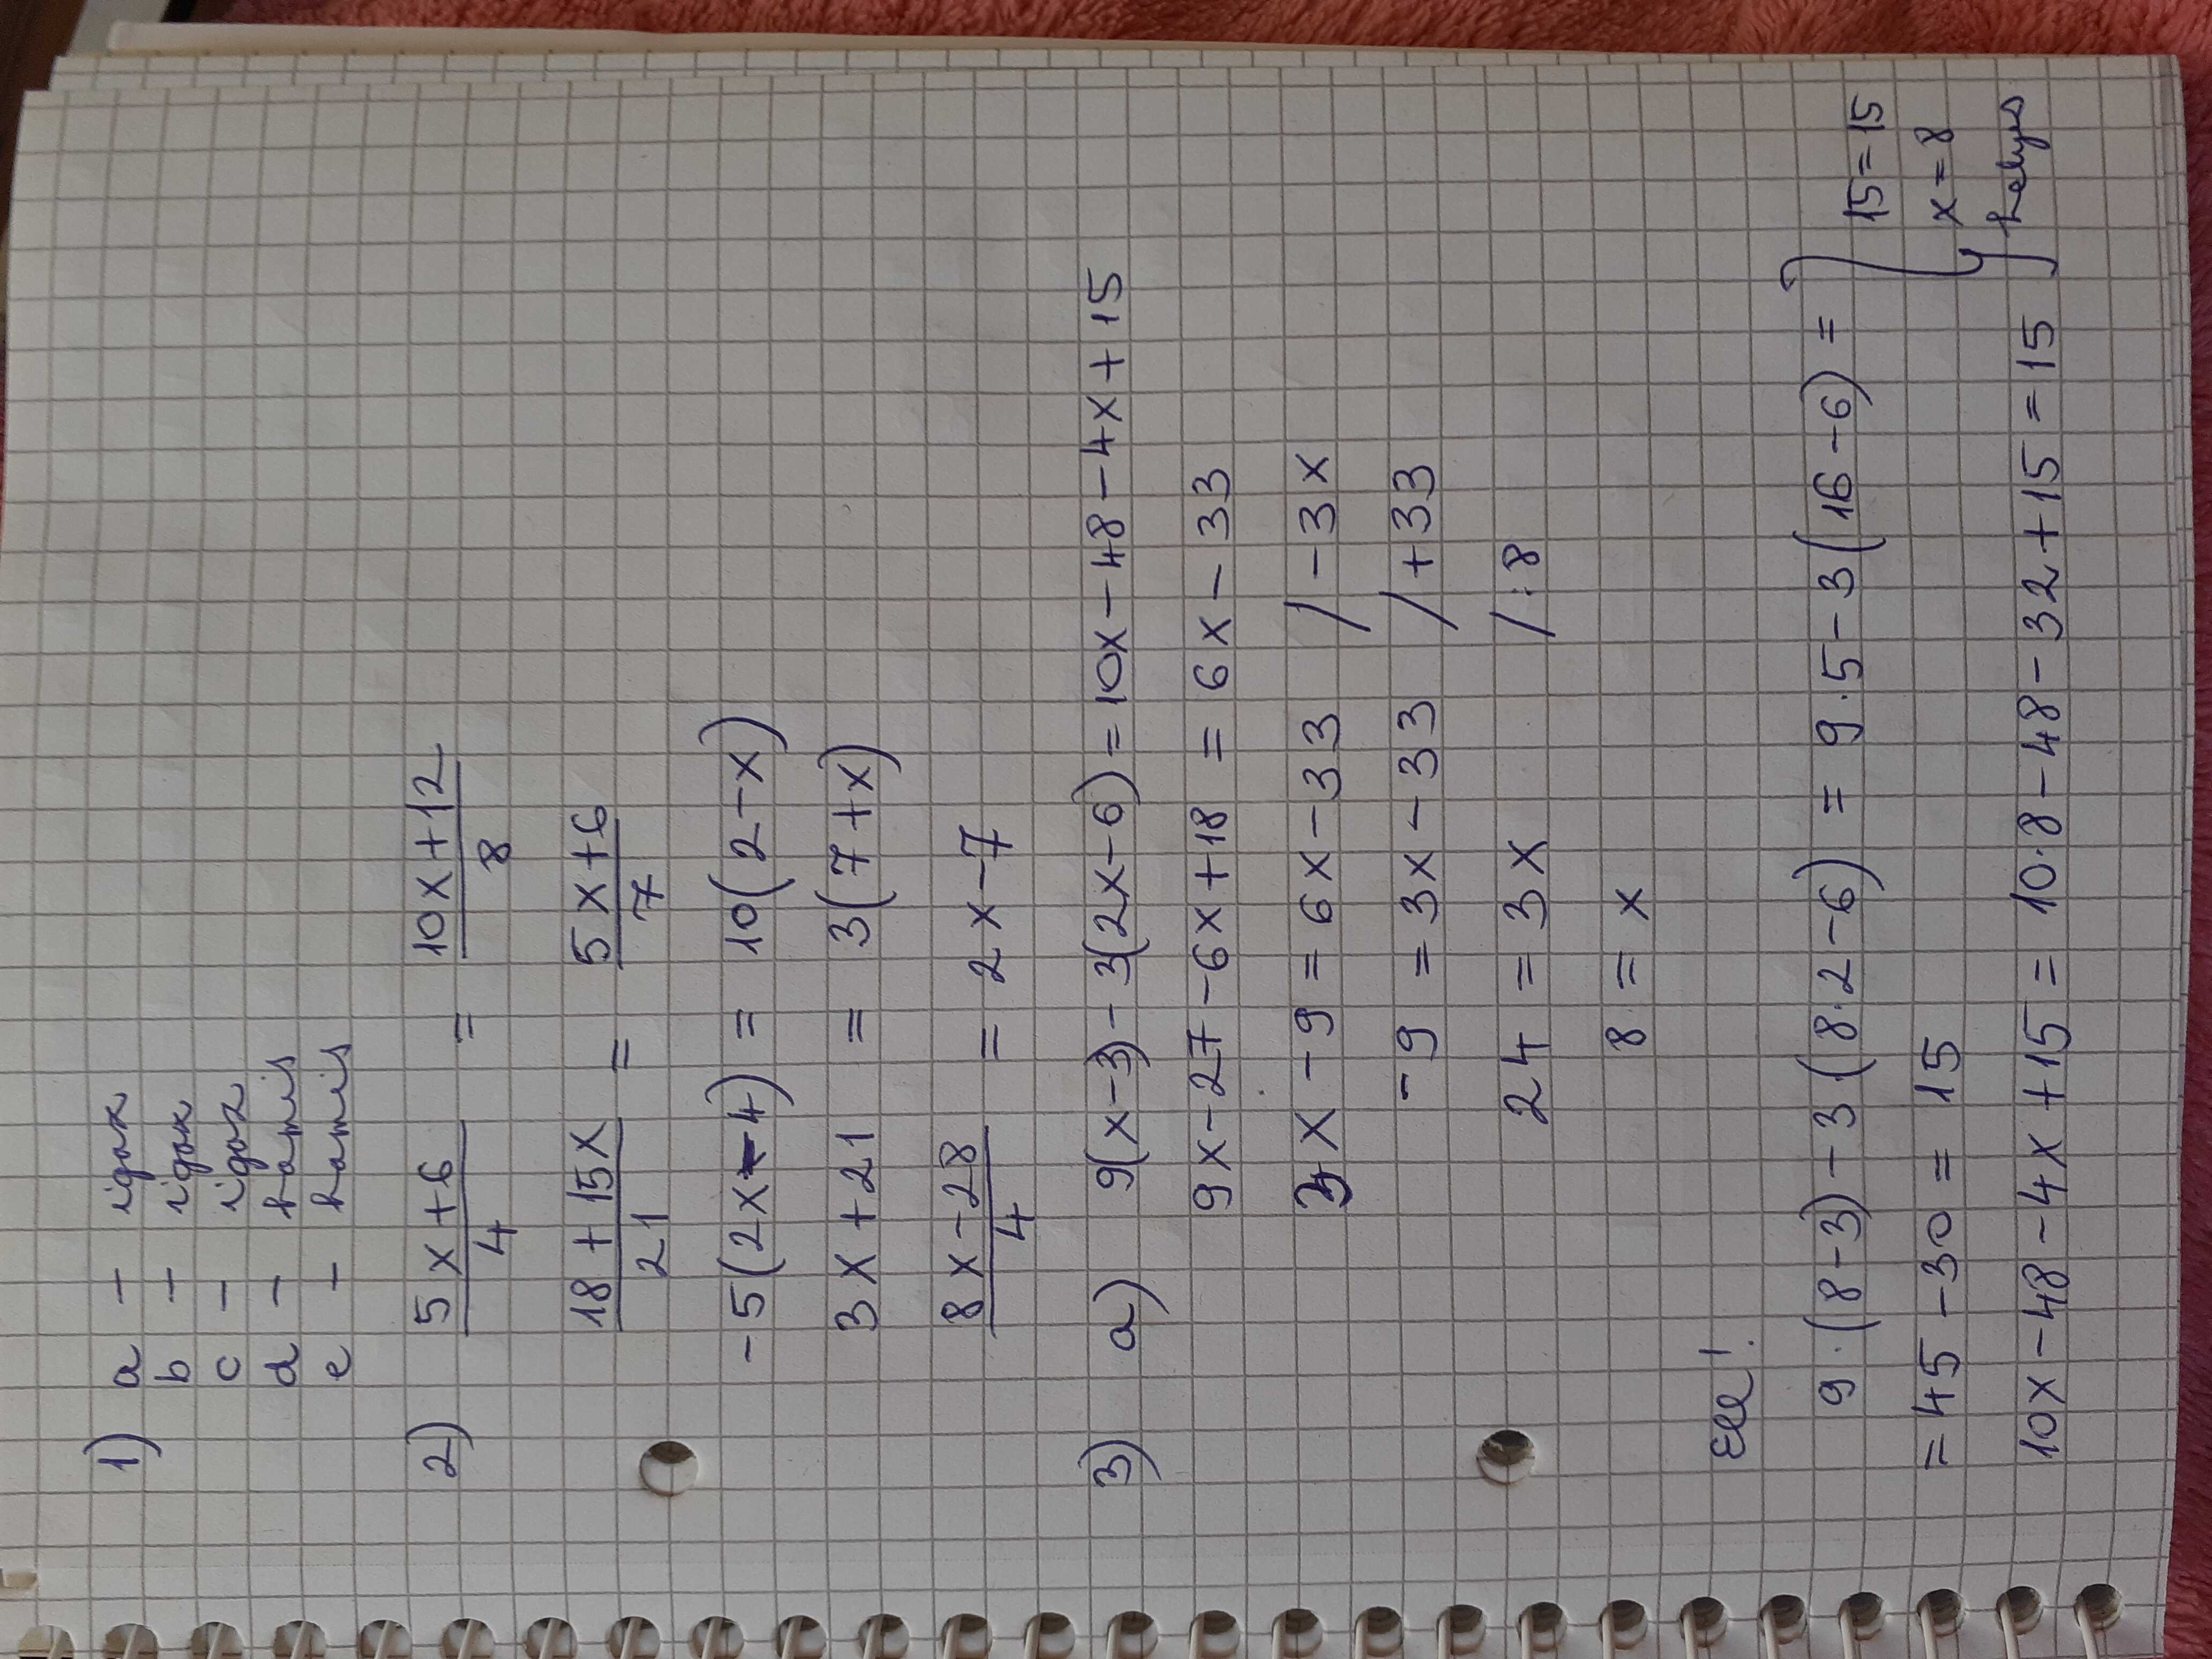 1) a – igaz
b – igaz
c – igaz
d – hamis
e – hamis
2) (5x+6)/4 = (10x+12)/8
(18+15x)/21 = (5x+6)/7
-5(2x-4) = 10(2-x)
3x+21 = 3(7+x)
(8x-28)/4 = 2x-7
3) a) 9(x-3)-3(2x-6)=10x-48-4x+15
9x-27-6x+18 = 6x-33
3x-9 = 6x-33 /-3x
-9 = 3x-33 /+33
24 = 3x /:8
8 = x
Ell!
9·(8-3)-3·(8·2-6) = 9·5-3(16-6) = } 15=15
= 45-30 = 15 x=8
10x-48-4x+15 = 10·8-48-32+15=15 } helyes